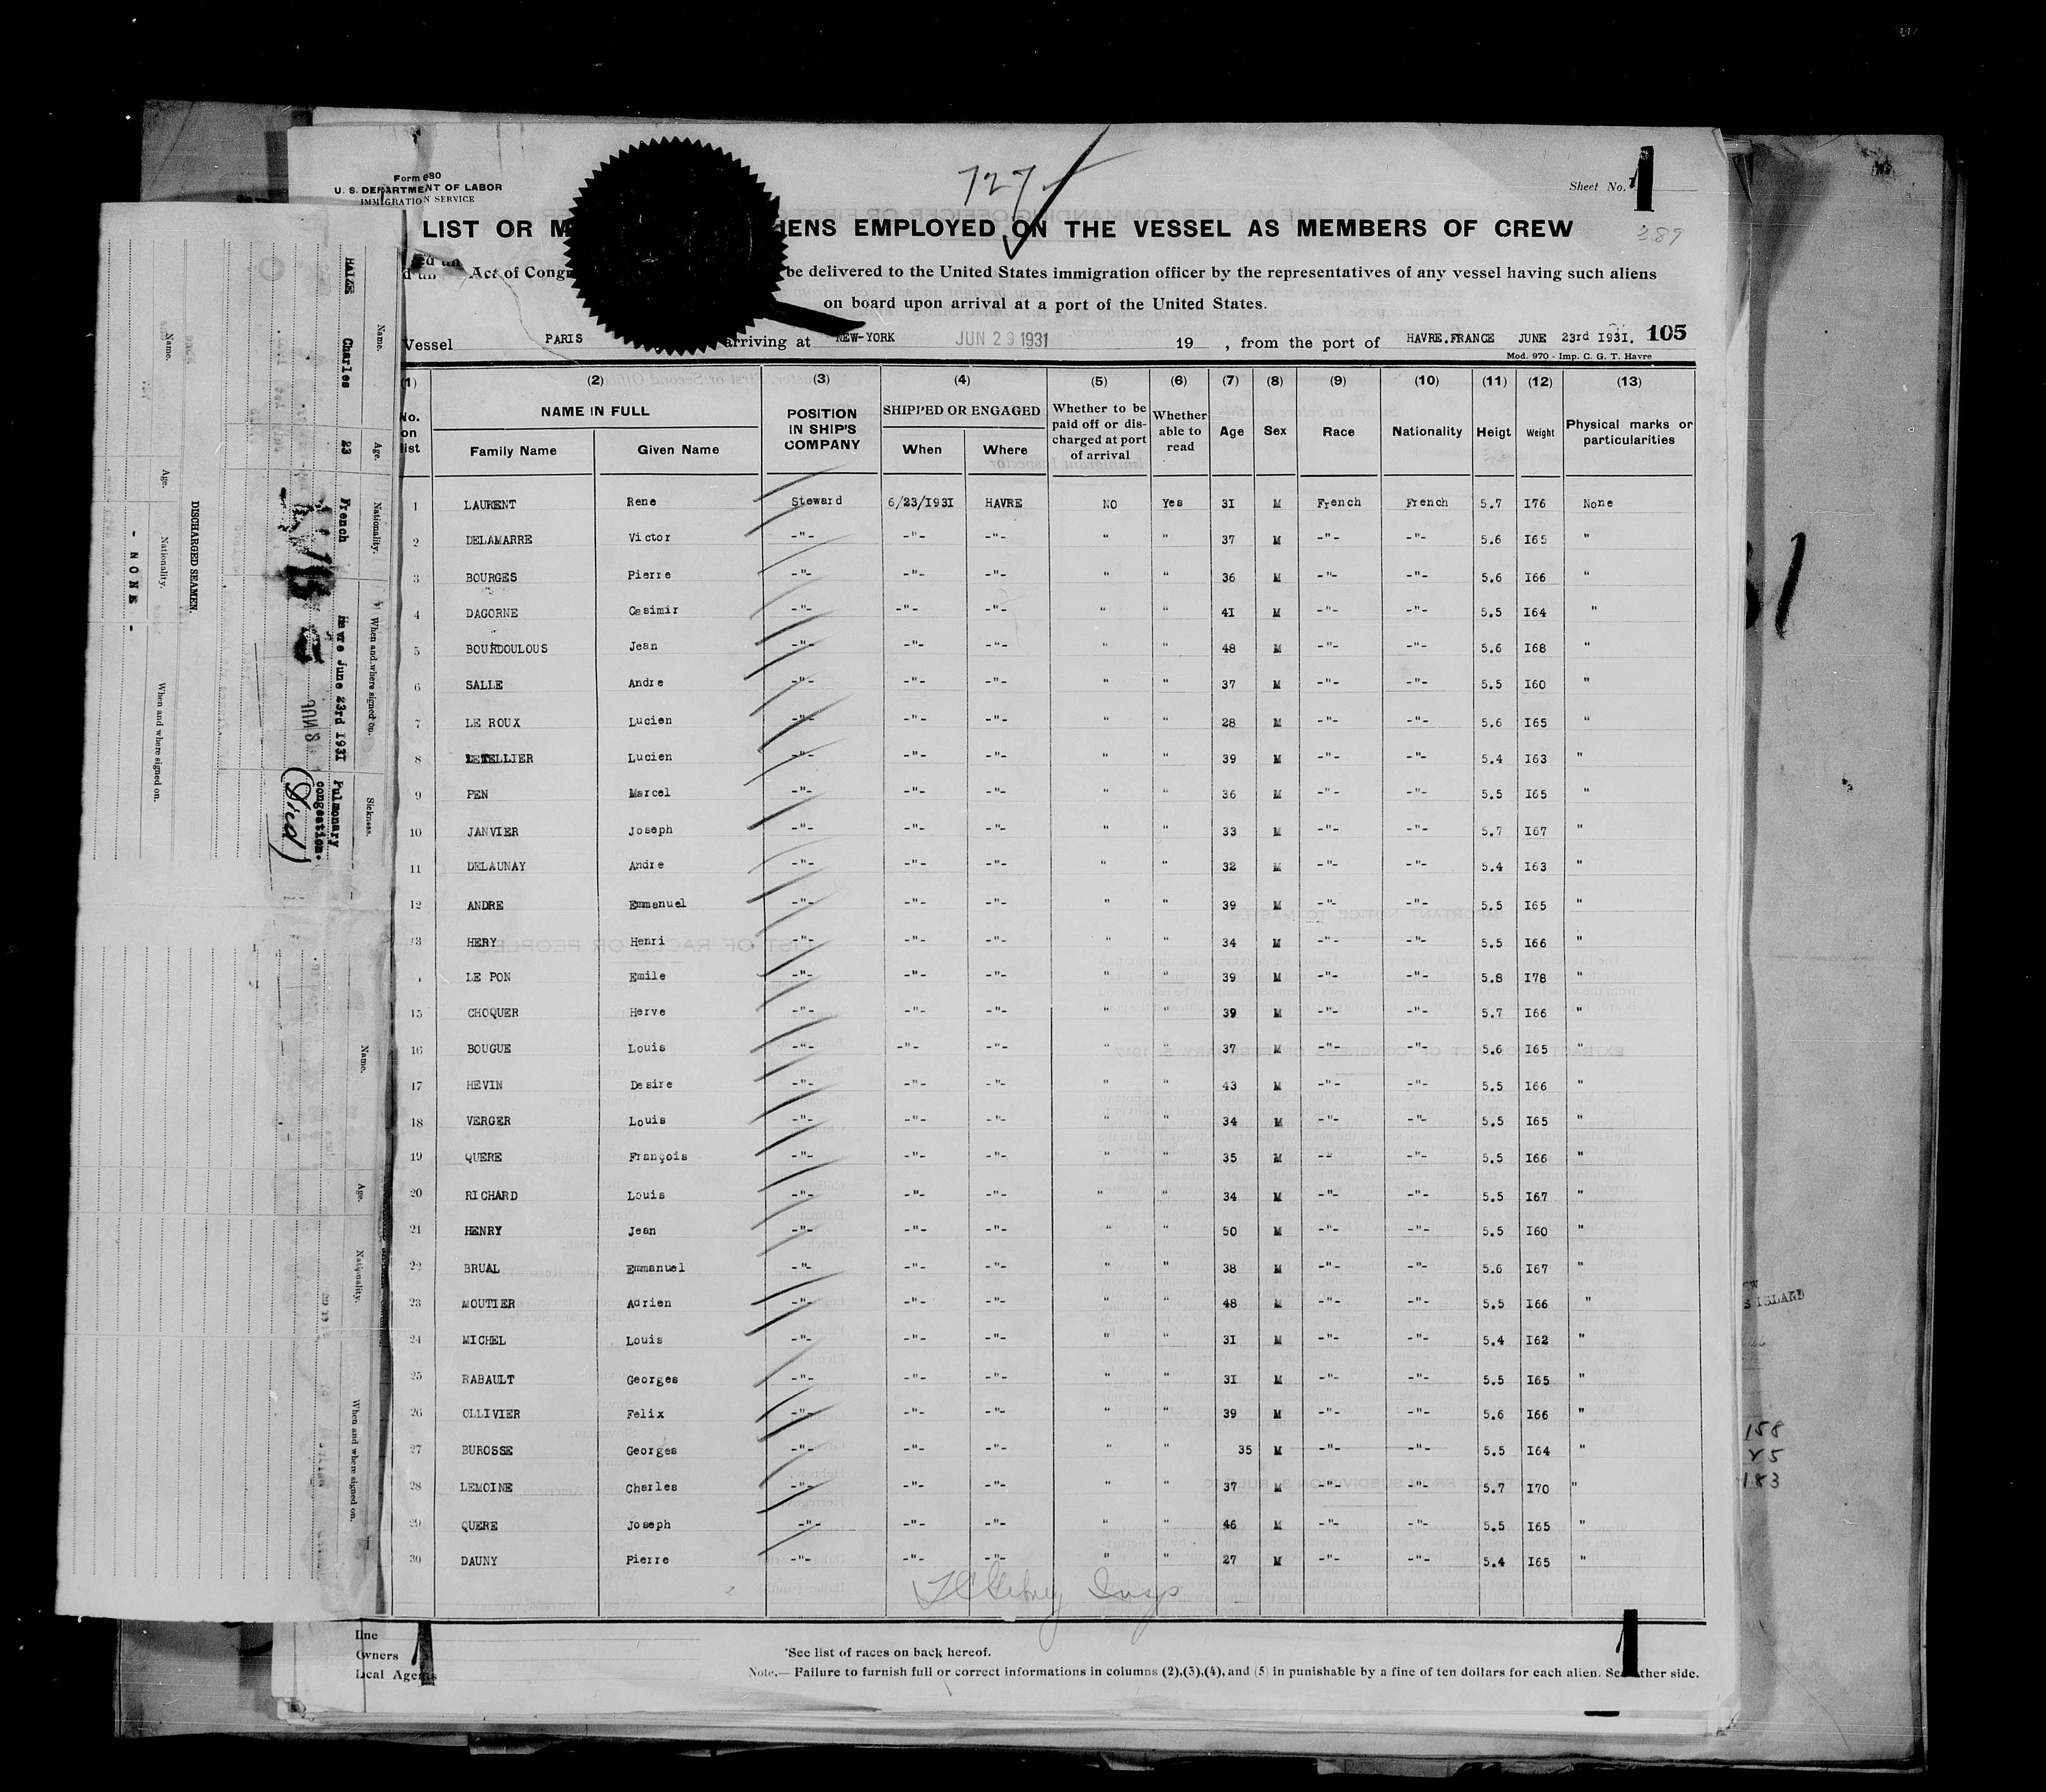 727
Form 680
U. S. DEPARTMENT OF LABOR
IMMIGRATION SERVICE
Sheet No. 1
289
LIST OR M IENS EMPLOYED ON THE VESSEL AS MEMBERS OF CREW
Act of Congr be delivered to the United States immigration officer by the representatives of any vessel having such aliens
on board upon arrival at a port of the United States.
Vessel PARIS arriving at NEW-YORK JUN 29 1931 19 , from the port of HAVRE.FRANCE JUNE 23rd I93I. 105
Mod. 970 - Imp. C. G. T. Havre
(1) (2) (3) (4) (5) (6) (7) (8) (9) (10) (11) (12) (13)
No. on list NAME IN FULL Family Name Given Name POSITION IN SHIP'S COMPANY SHIPPED OR ENGAGED When Where Whether to be paid off or discharged at port of arrival Whether able to read Age Sex Race Nationality Heigt Weight Physical marks or particularities
1 LAURENT Rene Steward 6/23/I93I HAVRE NO Yes 3I M French French 5.7 I76 None
2 DELAMARRE Victor -"- -"- -"- " " 37 M -"- -"- 5.6 I65 "
3 BOURGES Pierre -"- -"- -"- " " 36 M -"- -"- 5.6 I66 "
4 DAGORNE Casimir -"- -"- -"- " " 4I M -"- -"- 5.5 I64 "
5 BOURDOULOUS Jean -"- -"- -"- " " 48 M -"- -"- 5.6 I68 "
6 SALLE Andre -"- -"- -"- " " 37 M -"- -"- 5.5 I60 "
7 LE ROUX Lucien -"- -"- -"- " " 28 M -"- -"- 5.6 I65 "
8 LETELLIER Lucien -"- -"- -"- " " 39 M -"- -"- 5.4 I63 "
9 PEN Marcel -"- -"- -"- " " 36 M -"- -"- 5.5 I65 "
10 JANVIER Joseph -"- -"- -"- " " 33 M -"- -"- 5.7 I67 "
11 DELAUNAY Andre -"- -"- -"- " " 32 M -"- -"- 5.4 I63 "
12 ANDRE Emmanuel -"- -"- -"- " " 39 M -"- -"- 5.5 I65 "
13 HERY Henri -"- -"- -"- " " 34 M -"- -"- 5.5 I66 "
LE PON Emile -"- -"- -"- " " 39 M -"- -"- 5.8 I78 "
15 CHOQUER Herve -"- -"- -"- " " 39 M -"- -"- 5.7 I66 "
16 BOUGUE Louis -"- -"- -"- " " 37 M -"- -"- 5.6 I65 "
17 HEVIN Desire -"- -"- -"- " " 43 M -"- -"- 5.5 I66 "
18 VERGER Louis -"- -"- -"- " " 34 M -"- -"- 5.5 I65 "
19 QUERE François -"- -"- -"- " " 35 M -"- -"- 5.5 I66 "
20 RICHARD Louis -"- -"- -"- " " 34 M -"- -"- 5.5 I67 "
21 HENRY Jean -"- -"- -"- " " 50 M -"- -"- 5.5 I60 "
22 BRUAL Emmanuel -"- -"- -"- " " 38 M -"- -"- 5.6 I67 "
23 MOUTIER Adrien -"- -"- -"- " " 48 M -"- -"- 5.5 I66 "
24 MICHEL Louis -"- -"- -"- " " 3I M -"- -"- 5.4 I62 "
25 RABAULT Georges -"- -"- -"- " " 3I M -"- -"- 5.5 I65 "
26 OLLIVIER Felix -"- -"- -"- " " 39 M -"- -"- 5.6 I66 "
27 BUROSSE Georges -"- -"- -"- " " 35 M -"- -"- 5.5 I64 "
28 LEMOINE Charles -"- -"- -"- " " 37 M -"- -"- 5.7 I70 "
29 QUERE Joseph -"- -"- -"- " " 46 M -"- -"- 5.5 I65 "
30 DAUNY Pierre -"- -"- -"- " " 27 M -"- -"- 5.4 I65 "
Line
Owners
Local Agents
*See list of races on back hereof.
Note.— Failure to furnish full or correct informations in columns (2),(3),(4), and (5) in punishable by a fine of ten dollars for each alien. See other side.
Name. Age. Nationality. When and where signed on. Sickness.
HAIZE Charles 23 French Havre June 23rd I93I Pulmonary congestion.
(Died)
DISCHARGED SEAMEN.
Name. Age. Nationality. When and where signed on.
- NONE -
Name. Age. Nationality. When and where signed on.
ISLAND
158
25
183